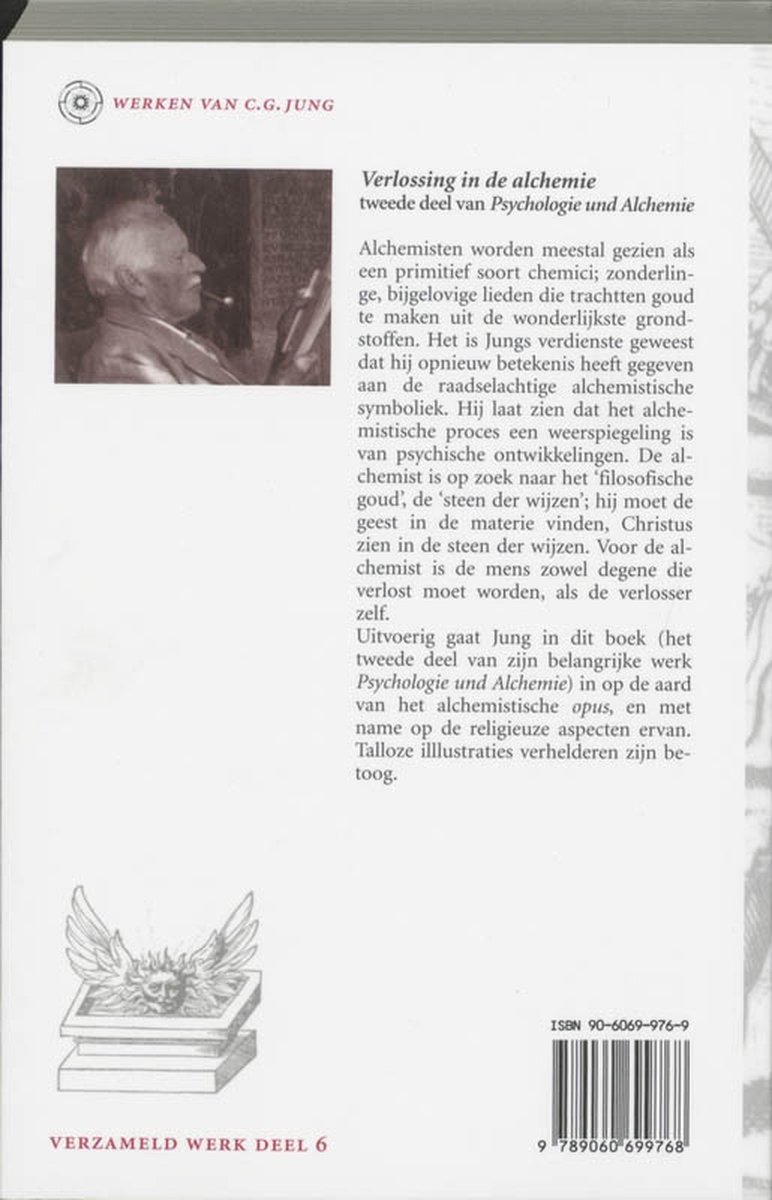 WERKEN VAN C.G. JUNG
Verlossing in de alchemie
tweede deel van Psychologie und Alchemie
Alchemisten worden meestal gezien als
een primitief soort chemici; zonderlin-
ge, bijgelovige lieden die trachtten goud
te maken uit de wonderlijkste grond-
stoffen. Het is Jungs verdienste geweest
dat hij opnieuw betekenis heeft gegeven
aan de raadselachtige alchemistische
symboliek. Hij laat zien dat het alche-
mistische proces een weerspiegeling is
van psychische ontwikkelingen. De al-
chemist is op zoek naar het ‘filosofische
goud’, de ‘steen der wijzen’; hij moet de
geest in de materie vinden, Christus
zien in de steen der wijzen. Voor de al-
chemist is de mens zowel degene die
verlost moet worden, als de verlosser
zelf.
Uitvoerig gaat Jung in dit boek (het
tweede deel van zijn belangrijke werk
Psychologie und Alchemie) in op de aard
van het alchemistische opus, en met
name op de religieuze aspecten ervan.
Talloze illlustraties verhelderen zijn be-
toog.
ISBN 90-6069-976-9
9 789060 699768
VERZAMELD WERK DEEL 6